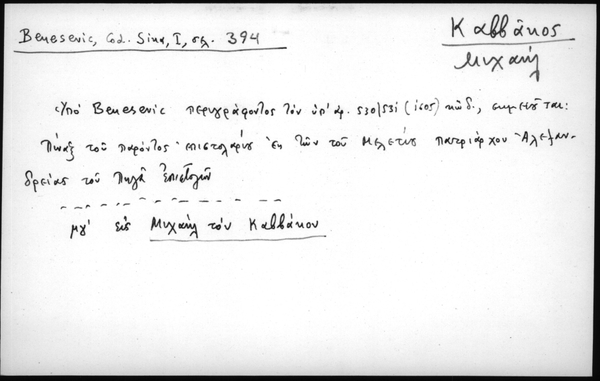 Benesevic, Cod. Sina, I, σελ. 394
Καββάκος
Μιχαήλ
Ὑπό Benesevic περιγράφοντος τόν ὑπ' ἀρ. 530/531 (1605) κώδ., σημειοῦται:
Πίναξ τοῦ παρόντος ἐπιστολαρίου ἐκ τῶν τοῦ Μελετίου πατριάρχου Ἀλεξαν-
δρείας τοῦ Πηγᾶ ἐπιστολῶν
μγ' εἰς Μιχαήλ τόν Καββάκον